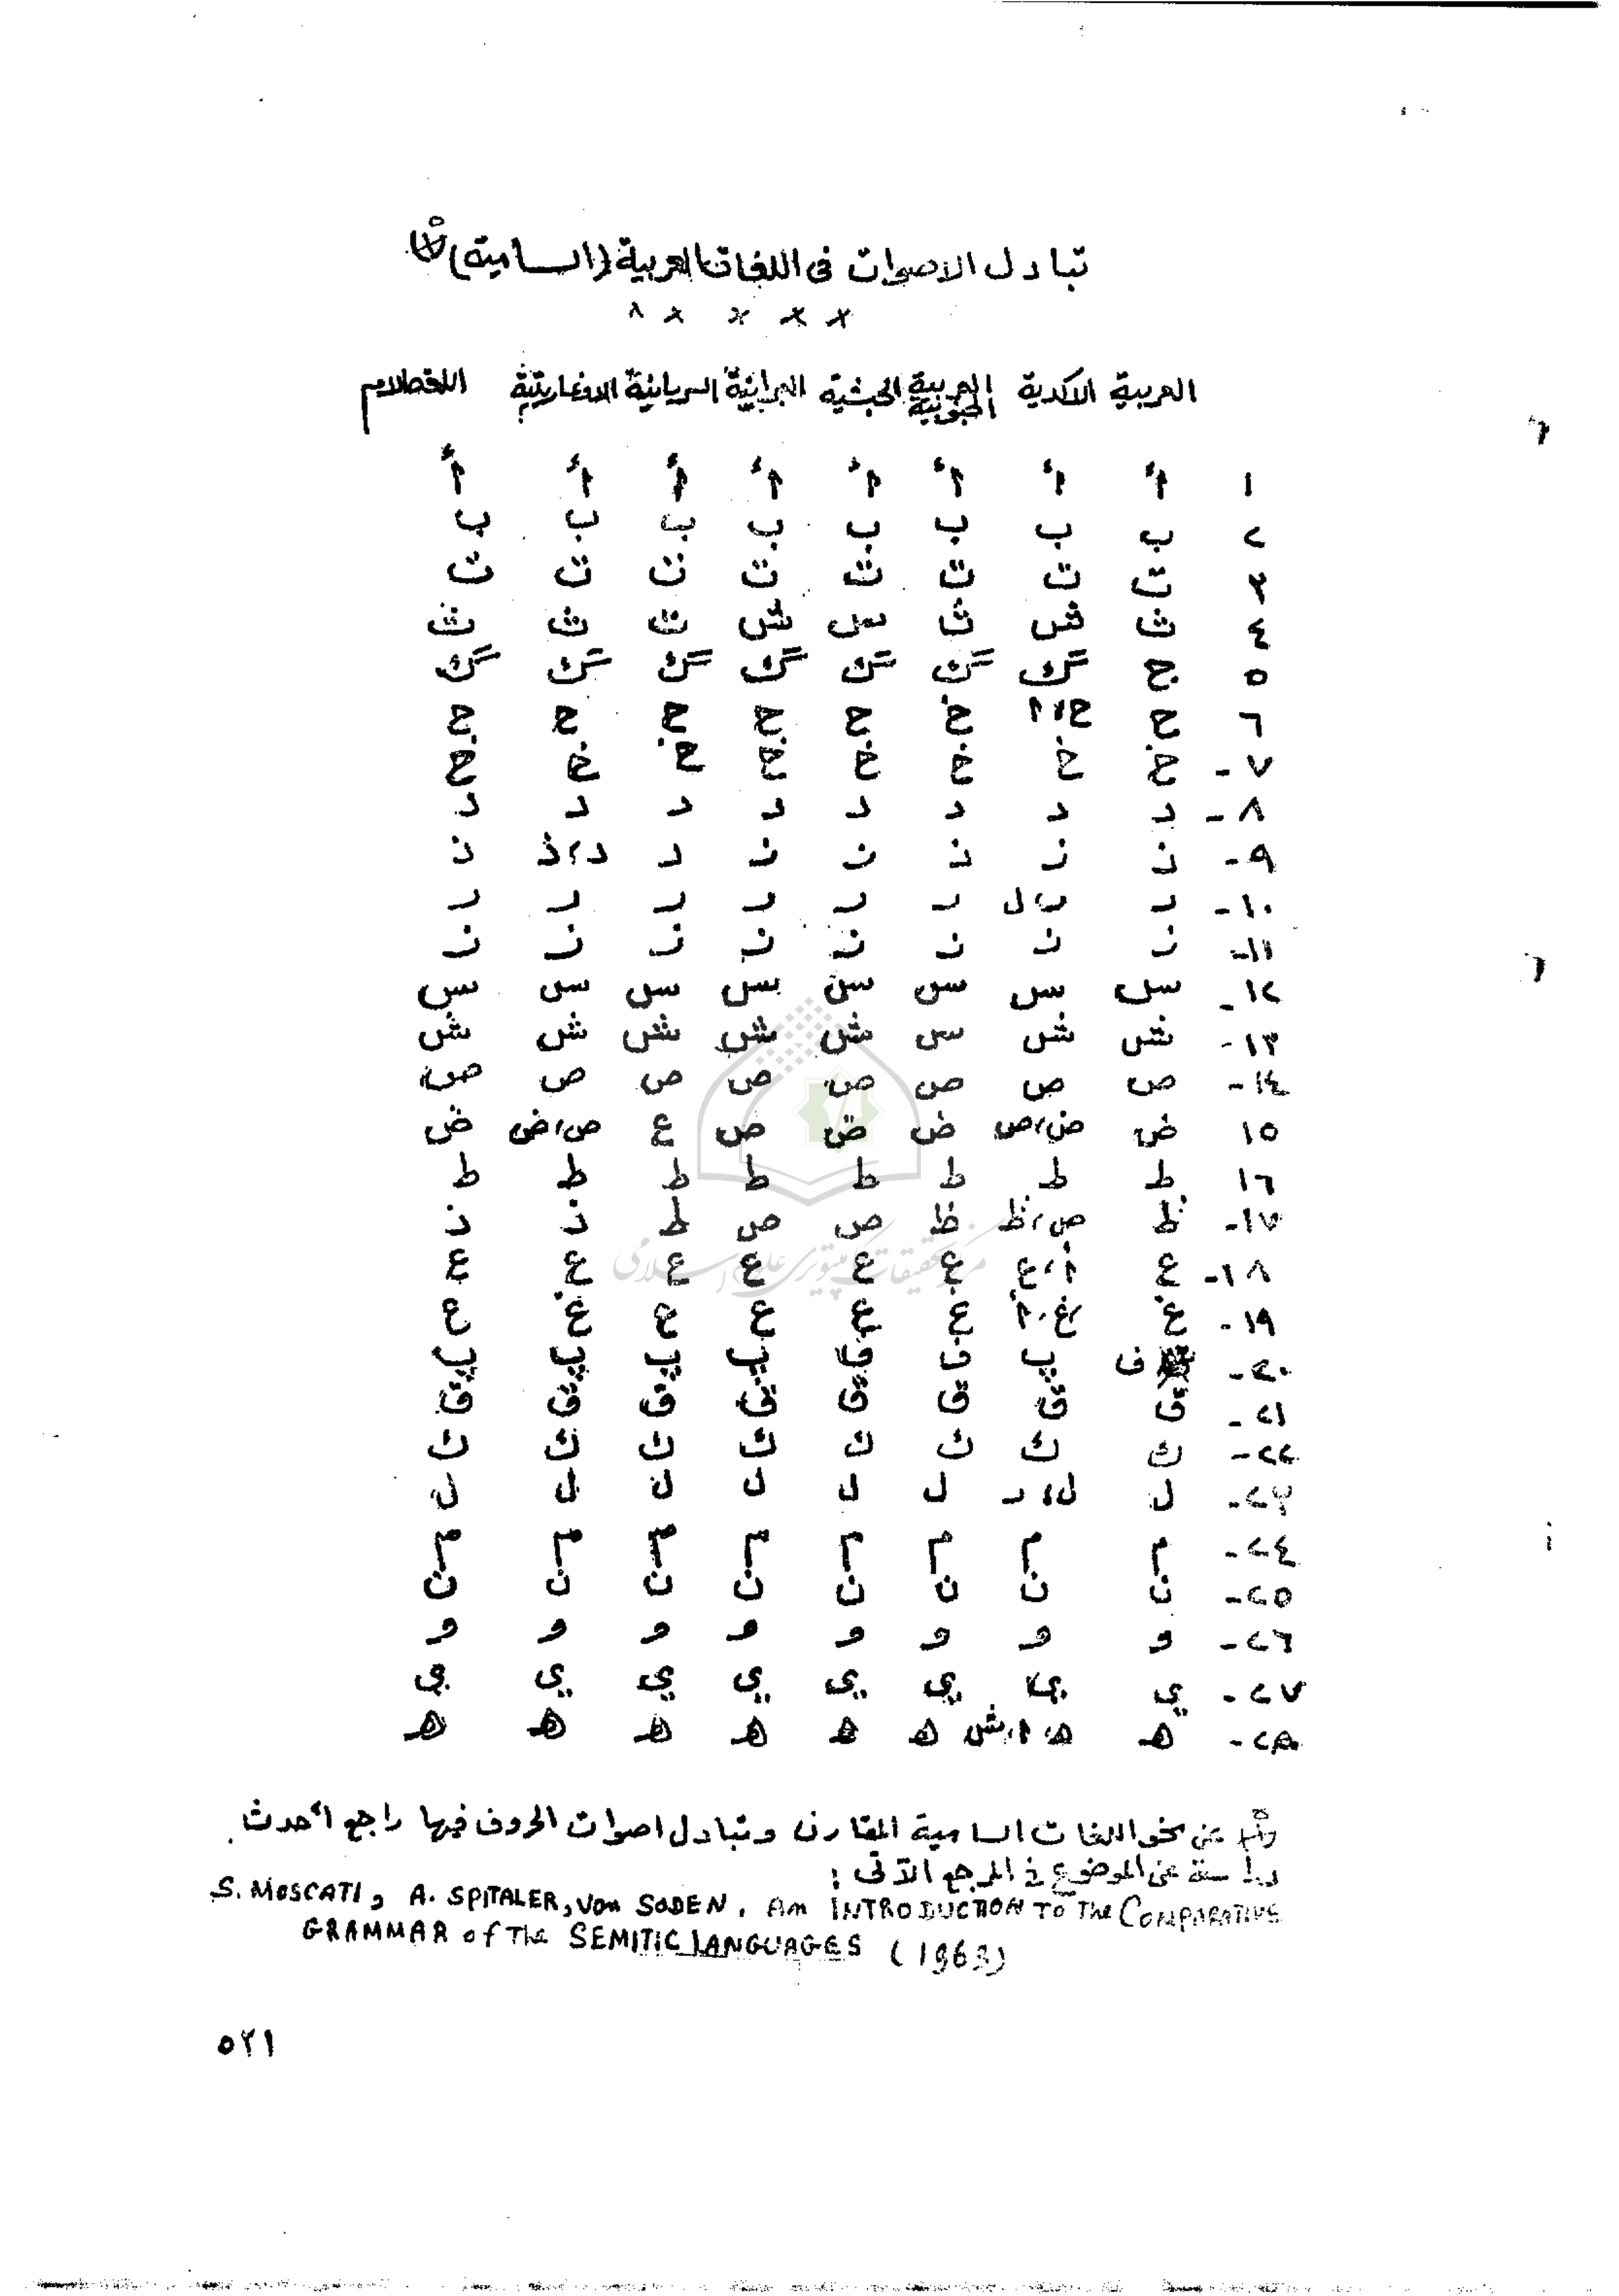 تبادل الاصوات في اللغات العربية (السامية)
x x x x x
العربية الاكدية العربية الجنوبية الحبشية العبرانية السريانية الاوغاريتية
١ أ أ أ أ أ أ أ أ
٢ ب ب ب ب ب ب ب ب
٣ ت ت ت ت ت ت ت ت
٤ ث ش ث س ش ت ث ث
٥ ج گ گ گ گ گ گ گ
٦ ح ح ح ح ح ح ح
٧ - خ خ خ خ خ ح خ ح
٨ - د د د د د د د د
٩ - ذ ز ذ ز ز د د،ذ ذ
١٠ - ر ر،ل ر ر ر ر ر ر
١١ - ز ز ز ز ز ز ز ز
١٢ - س س س س س س س س
١٣ - ش ش س ش ش ش ش ش
١٤ - ص ص ص ص ص ص ص ص
١٥ ض ض،ص ض ض ص ع ص،ض ض
١٦ ط ط ط ط ط ط ط ط
١٧ - ظ ص،ظ ظ ص ص ط ذ ذ
١٨ - ع أ،ع ع ع ع ع ع ع
١٩ - غ غ،أ غ ع ع ع غ ع
٢٠ - ف پ ف ف پ پ پ پ
٢١ - ق ق ق ق ق ق ق ق
٢٢ - ك ك ك ك ك ك ك ك
٢٣ - ل ل،ر ل ل ل ل ل ل
٢٤ - م م م م م م م م
٢٥ - ن ن ن ن ن ن ن ن
٢٦ - و و و و و و و و
٢٧ - ي ي ي ي ي ي ي ي
٢٨ - ه ه،ا،ش ه ه ه ه ه ه
عن نحو اللغات السامية المقارن وتبادل اصوات الحروف فيها راجع أحدث
دراسة عن الموضوع في المرجع الآتي :
S. MOSCATI, A. SPITALER, Von SODEN, An INTRODUCTION To The COMPARATIVE
GRAMMAR of The SEMITIC LANGUAGES (1963)
٥٢١
مركز تحقيقات كامپيوتري علوم اسلامي